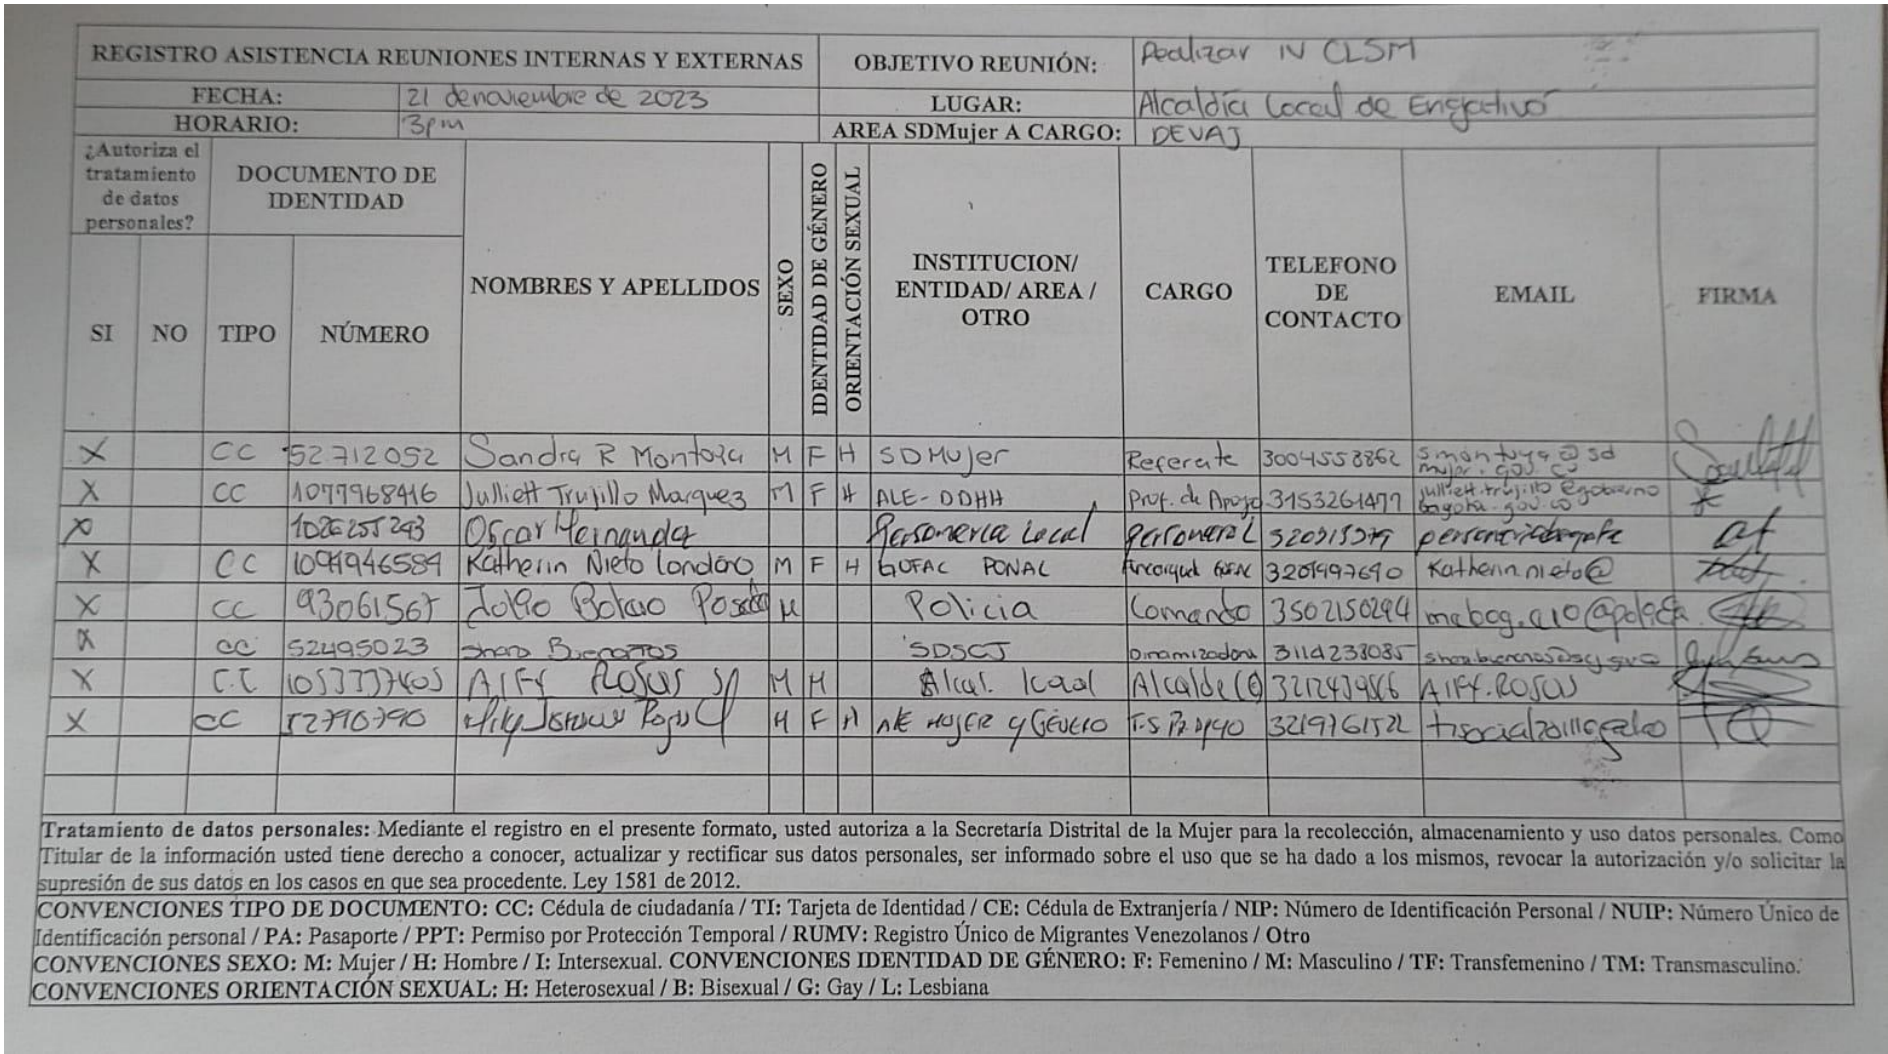 REGISTRO ASISTENCIA REUNIONES INTERNAS Y EXTERNAS OBJETIVO REUNIÓN: Realizar IV CLSM
FECHA: 21 de noviembre de 2023 LUGAR: Alcaldía Local de Engativá
HORARIO: 3pm AREA SDMujer A CARGO: DEVAJ
¿Autoriza el tratamiento de datos personales? DOCUMENTO DE IDENTIDAD NOMBRES Y APELLIDOS SEXO IDENTIDAD DE GÉNERO ORIENTACIÓN SEXUAL INSTITUCION/ ENTIDAD/ AREA / OTRO CARGO TELEFONO DE CONTACTO EMAIL FIRMA
SI NO TIPO NÚMERO
X CC 52712052 Sandra R Montoya M F H SDMujer Referente 3004553862 smontoya@sdmujer.gov.co
X CC 1077968416 Julliett Trujillo Marquez M F H ALE-DDHH Prof. de Apoyo 3153261477 julliett.trujillo@gobiernobogota.gov.co
X 1026255243 Oscar Hernandez Personeria Local Personero L
X CC 1094946584 Katherin Nieto Londoño M F H GOFAC PONAL 3201497690 Katherin.nieto@
X CC 93061567 Bolao Policia Comando 3502150294
X CC 52495023 SDSCJ Dinamizadora 3114233085
X C.C Rosas M H Alcal. local Alcalde (e)
X CC 52790790 F H MUJER y GÉNERO
Tratamiento de datos personales: Mediante el registro en el presente formato, usted autoriza a la Secretaría Distrital de la Mujer para la recolección, almacenamiento y uso datos personales. Como
Titular de la información usted tiene derecho a conocer, actualizar y rectificar sus datos personales, ser informado sobre el uso que se ha dado a los mismos, revocar la autorización y/o solicitar la
supresión de sus datos en los casos en que sea procedente. Ley 1581 de 2012.
CONVENCIONES TIPO DE DOCUMENTO: CC: Cédula de ciudadanía / TI: Tarjeta de Identidad / CE: Cédula de Extranjería / NIP: Número de Identificación Personal / NUIP: Número Único de
Identificación personal / PA: Pasaporte / PPT: Permiso por Protección Temporal / RUMV: Registro Único de Migrantes Venezolanos / Otro
CONVENCIONES SEXO: M: Mujer / H: Hombre / I: Intersexual. CONVENCIONES IDENTIDAD DE GÉNERO: F: Femenino / M: Masculino / TF: Transfemenino / TM: Transmasculino.
CONVENCIONES ORIENTACIÓN SEXUAL: H: Heterosexual / B: Bisexual / G: Gay / L: Lesbiana